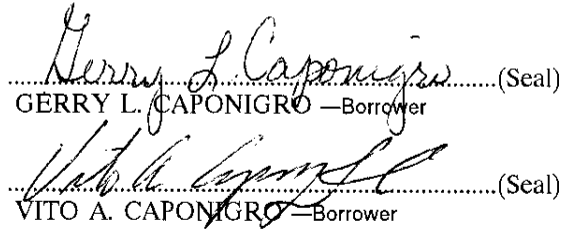 Gerry L. Caponigro (Seal)
GERRY L. CAPONIGRO —Borrower
Vito A (Seal)
VITO A. CAPONIGRO —Borrower